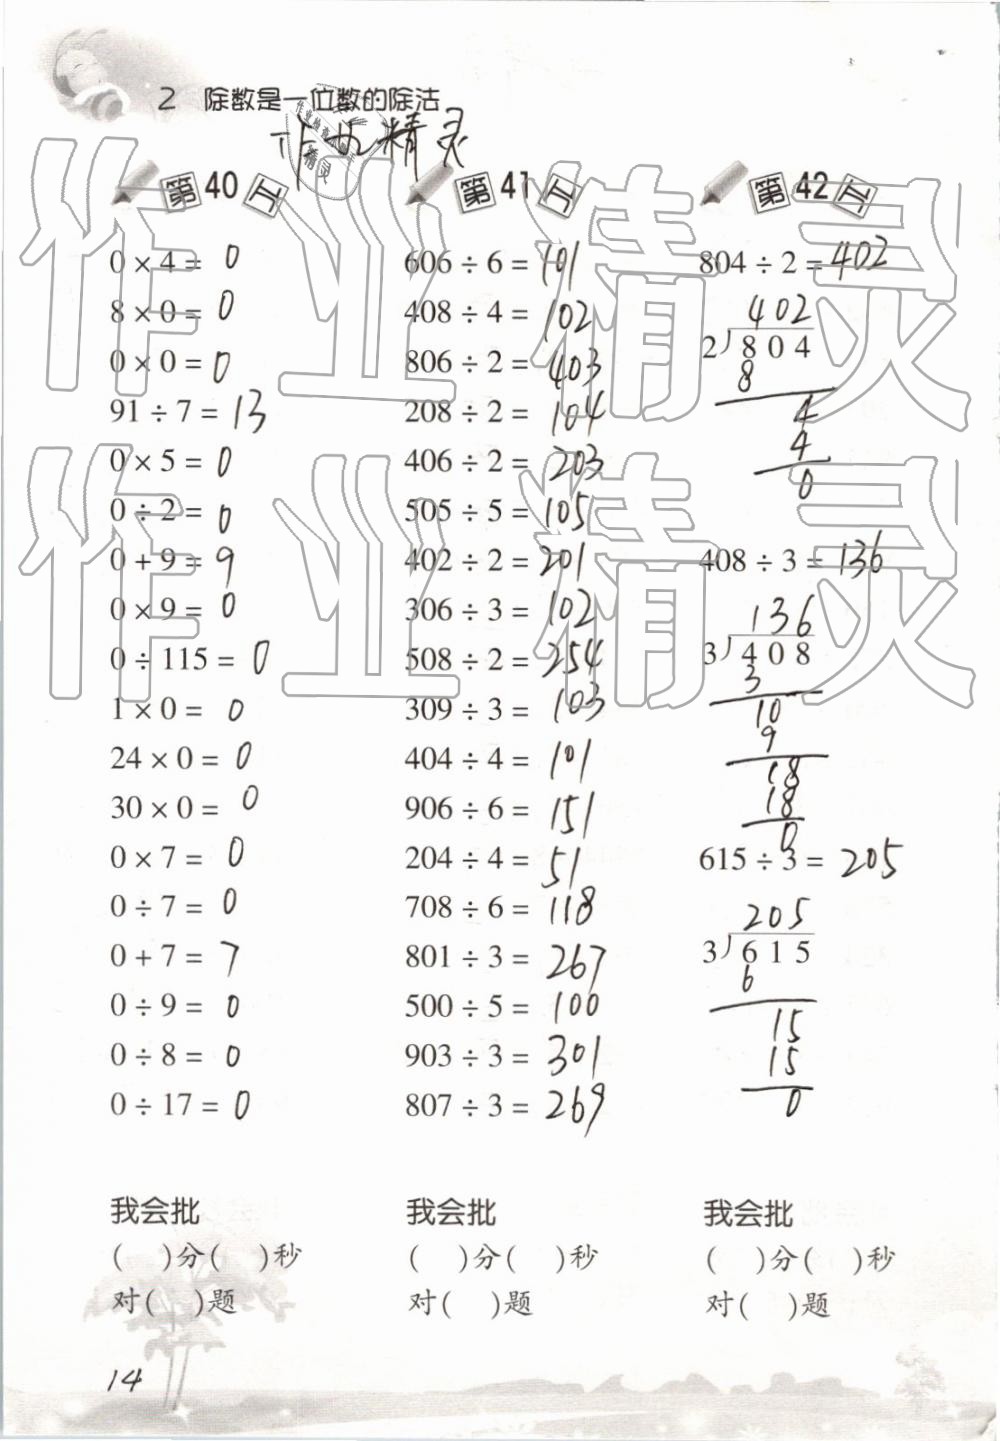 2 除数是一位数的除法
作业精灵
第 40 工
0 × 4 = 0
8 × 0 = 0
0 × 0 = 0
91 ÷ 7 = 13
0 × 5 = 0
0 ÷ 2 = 0
0 + 9 = 9
0 × 9 = 0
0 ÷ 115 = 0
1 × 0 = 0
24 × 0 = 0
30 × 0 = 0
0 × 7 = 0
0 ÷ 7 = 0
0 + 7 = 7
0 ÷ 9 = 0
0 ÷ 8 = 0
0 ÷ 17 = 0
我会批
( )分( )秒
对( )题
第 41 工
606 ÷ 6 = 101
408 ÷ 4 = 102
806 ÷ 2 = 403
208 ÷ 2 = 104
406 ÷ 2 = 203
505 ÷ 5 = 105
402 ÷ 2 = 201
306 ÷ 3 = 102
508 ÷ 2 = 254
309 ÷ 3 = 103
404 ÷ 4 = 101
906 ÷ 6 = 151
204 ÷ 4 = 51
708 ÷ 6 = 118
801 ÷ 3 = 267
500 ÷ 5 = 100
903 ÷ 3 = 301
807 ÷ 3 = 269
我会批
( )分( )秒
对( )题
第 42 工
804 ÷ 2 = 402
402
2)804
8
4
4
0
408 ÷ 3 = 136
136
3)408
3
10
9
18
18
0
615 ÷ 3 = 205
205
3)615
6
15
15
0
我会批
( )分( )秒
对( )题
14
作业精灵
作业精灵